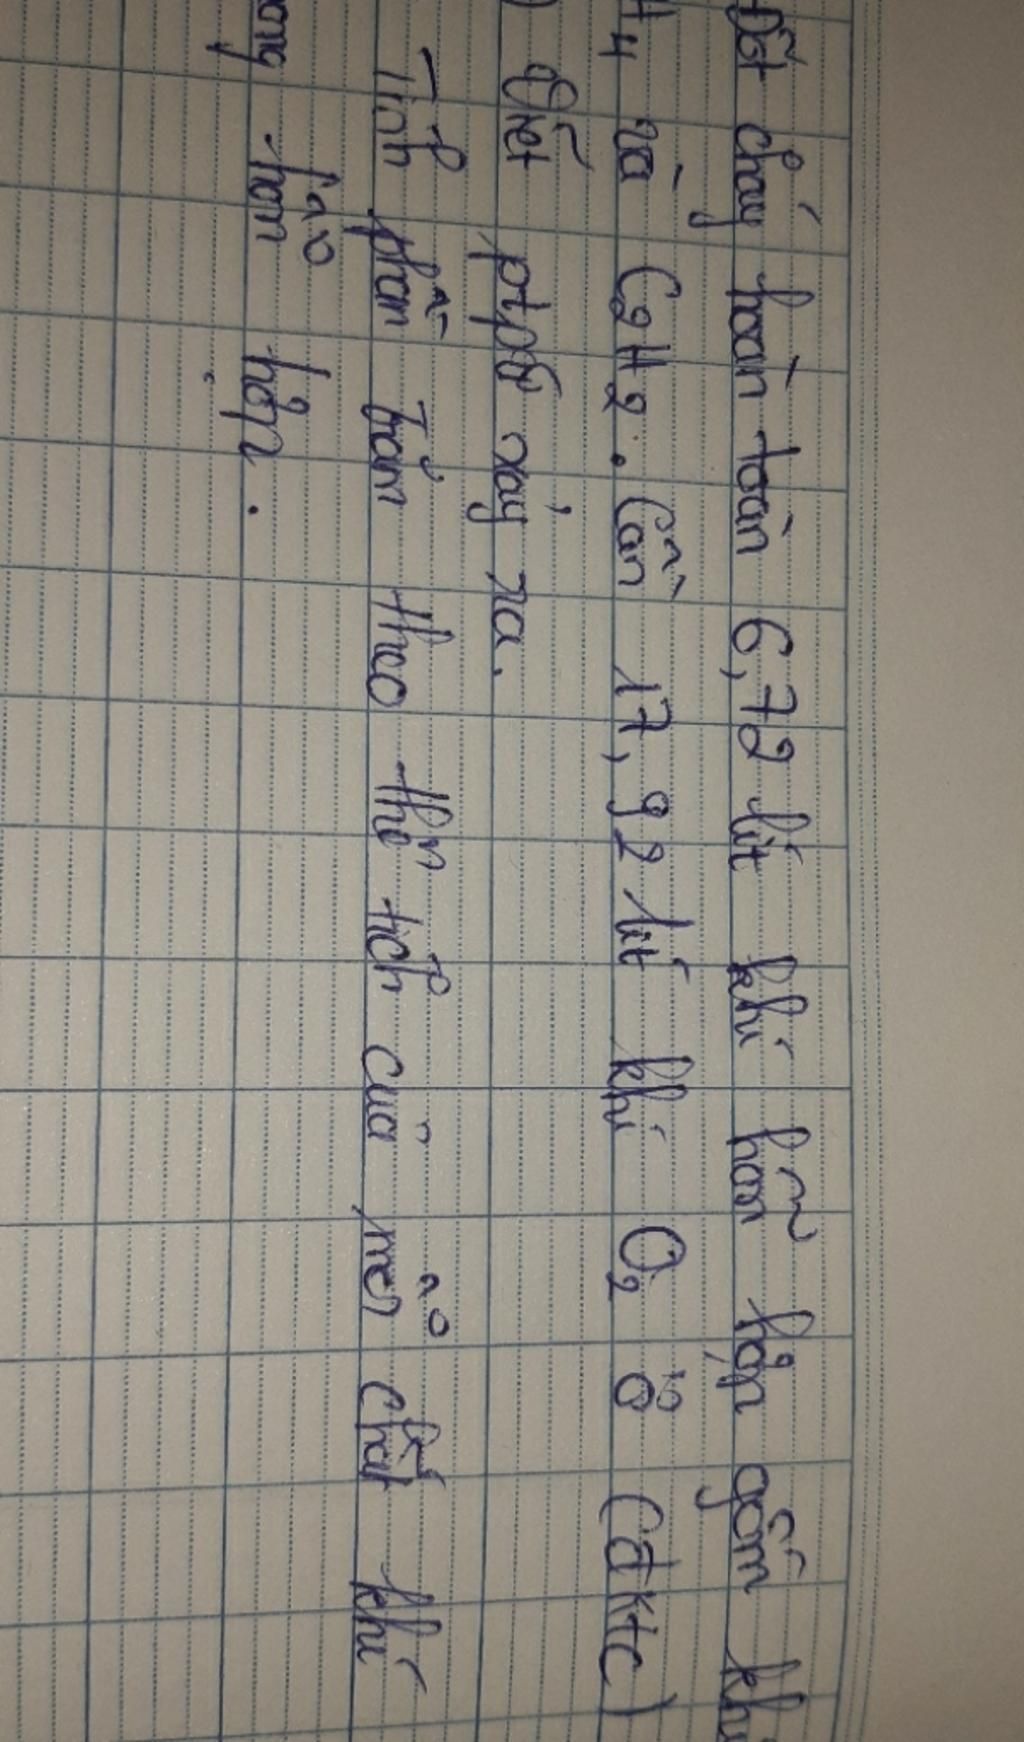 Đốt cháy hoàn toàn 6,72 lít khí hỗn hợp gồm khí
H4 và C2H2. Cần 17,92 lít khí O2 ở (đktc)
) Viết ptpứ xảy ra.
Tính phần trăm theo thể tích của mỗi chất khí
ong hỗn hợp.